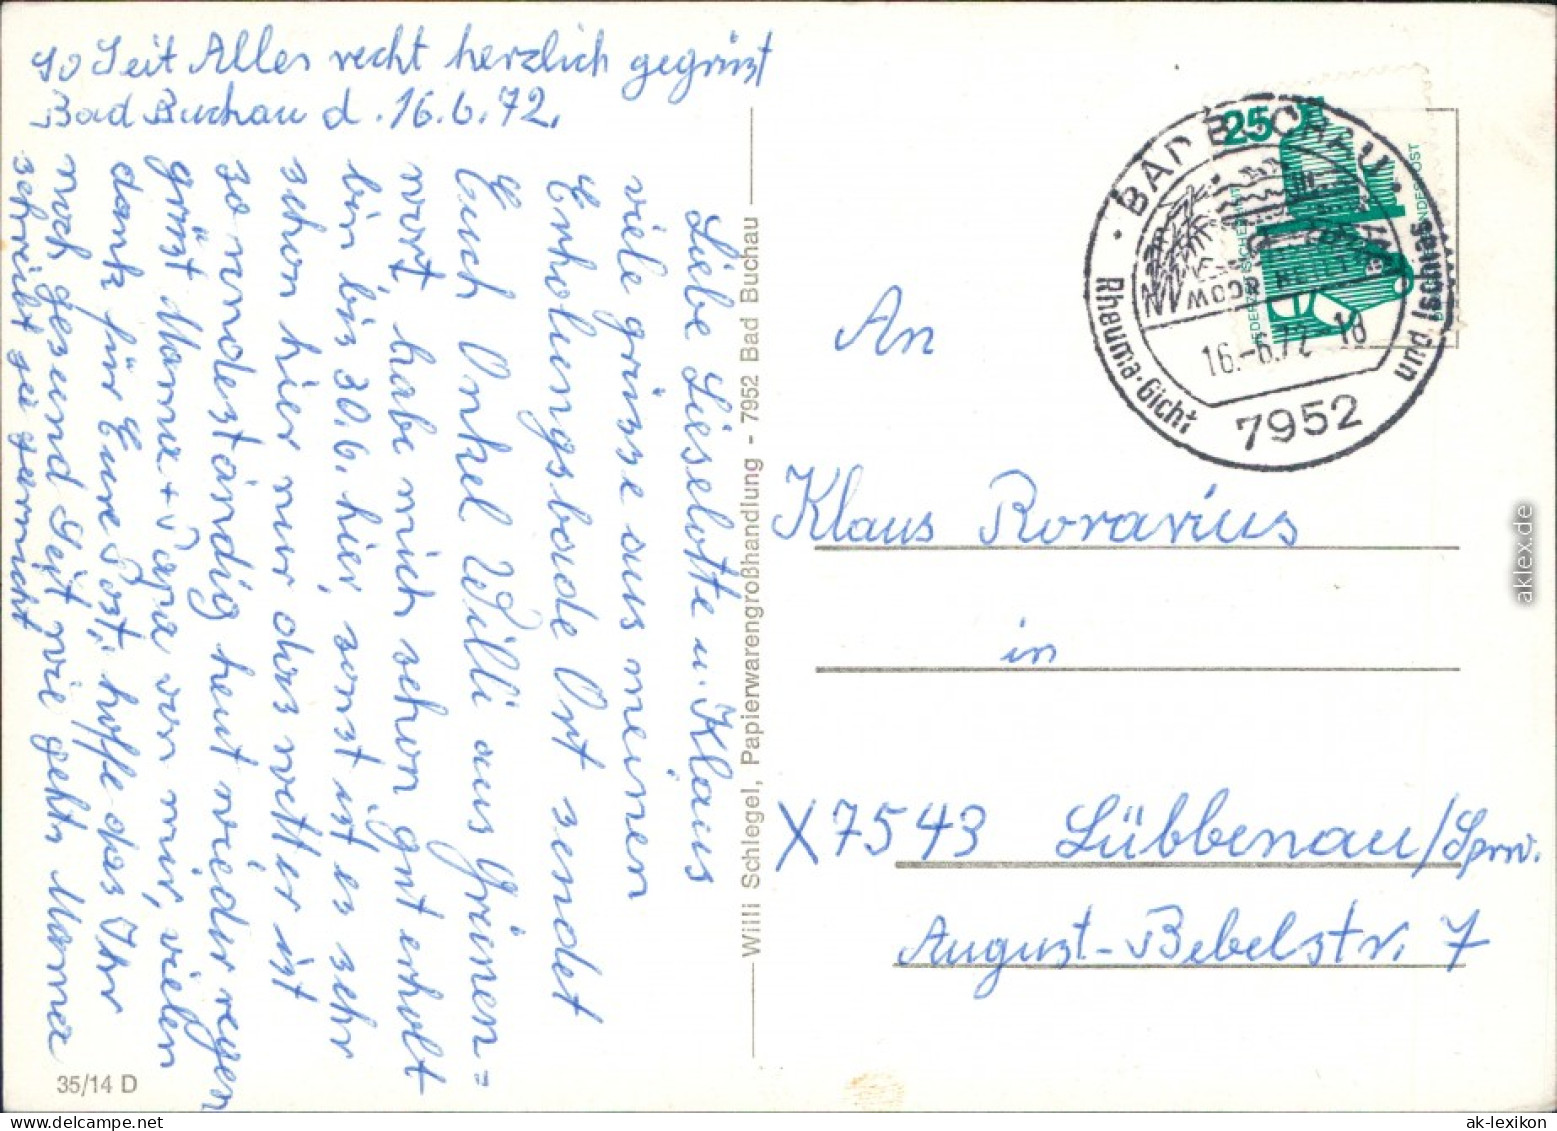 so Seit Alles recht herzlich gegrüst
Bad Buchau d. 16.6.72.
Liebe Lieselotte u. Klaus
viele grüsse aus meinen
Erholungsbade Ort sendet
Euch Onkel Willi aus Grünen=
wort, habe mich schon gut erholt
bin bis 30.6. hier, sonst ist es sehr
schon hier nur das wetter ist
so unndeständig heut wieder regen
grüst Mama + Papa von mir, vielen
dank für Eure Post, hoffe das Ihr
noch gesund Seit, wie gehts Mama
schreibt sie garnicht
35/14 D
Willi Schlegel, Papierwarengroßhandlung - 7952 Bad Buchau
25
DEUTSCHE BUNDESPOST
· BAD BUCHAU ·
MOOR HEILT
16.-6.72-18
Rheuma·Gicht und Ischias
7952
An
Klaus Roravius
in
X7543 Lübbenau/Sprw.
August-Bebelstr. 7
aklex.de
ak-lexikon